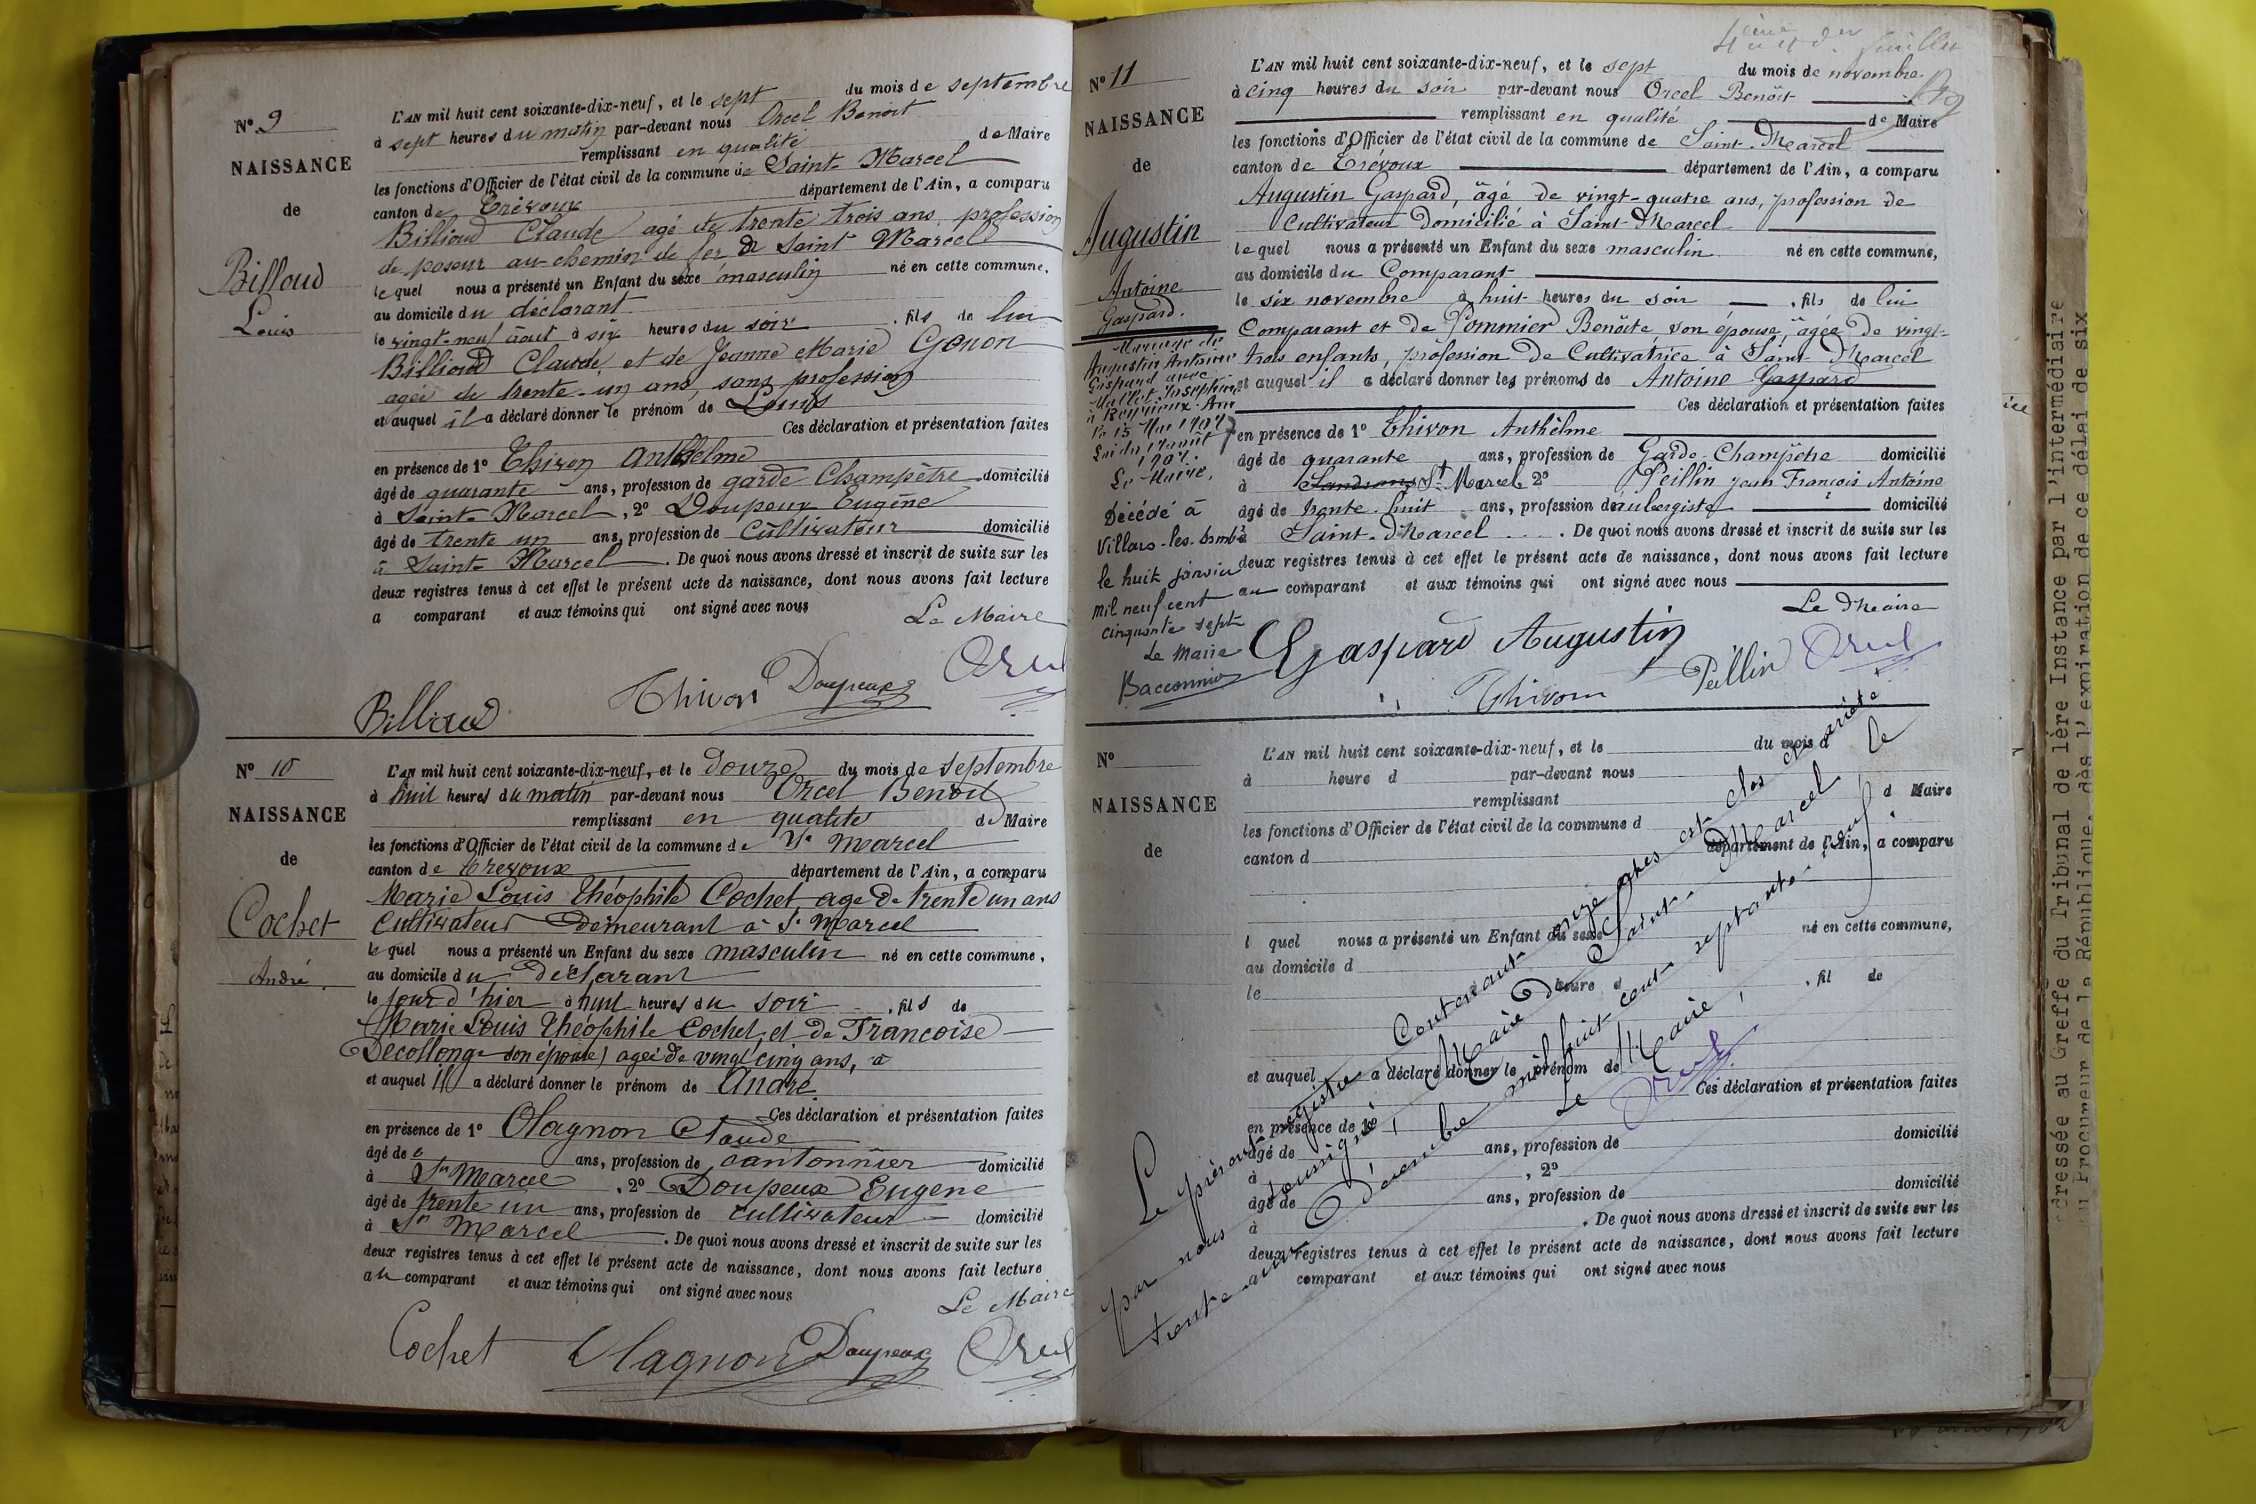 N° 9
NAISSANCE
de
Billoud
Louis
L'AN mil huit cent soixante-dix-neuf, et le sept du mois de septembre
à sept heures du matin par-devant nous Orcel Benoit
remplissant en qualité de Maire
les fonctions d'Officier de l'état civil de la commune de Saint-Marcel
canton de Trévoux département de l'Ain, a comparu
Billioud Claude agé de trente trois ans, profession
de poseur au chemin de fer de Saint Marcel
le quel nous a présenté un Enfant du sexe masculin né en cette commune,
au domicile du déclarant
le vingt-neuf août à six heures du soir, fils de lui
Billioud Claude, et de Jeanne Marie Gonon
agée de trente-un ans, sans profession
et auquel il a déclaré donner le prénom de Louis
Ces déclaration et présentation faites
en présence de 1° Thivon Anthelme
âgé de quarante ans, profession de garde Champêtre domicilié
à Saint-Marcel, 2° Doupeux Eugène
âgé de trente un ans, profession de Cultivateur domicilié
à Saint-Marcel. De quoi nous avons dressé et inscrit de suite sur les
deux registres tenus à cet effet le présent acte de naissance, dont nous avons fait lecture
a comparant et aux témoins qui ont signé avec nous
Le Maire
Billioud Thivon Doupeux Orcel
N° 10
NAISSANCE
de
Cochet
André.
L'AN mil huit cent soixante-dix-neuf, et le douze du mois de septembre
à huit heures du matin par-devant nous Orcel Benoit
remplissant en qualité de Maire
les fonctions d'Officier de l'état civil de la commune de St Marcel
canton de trevoux département de l'Ain, a comparu
Marie Louis Théophile Cochet age de trente un ans
Cultivateur Demeurant a St Marcel
le quel nous a présenté un Enfant du sexe masculin né en cette commune,
au domicile du Déclarant
le jour d'hier à huit heures du soir, fils de
Marie Louis Théophile Cochet et de Françoise
Decollonge son épouse agée de vingt cinq ans,
et auquel il a déclaré donner le prénom de André
Ces déclaration et présentation faites
en présence de 1° Olagnon Claude
âgé de ans, profession de cantonnier domicilié
à St Marcel, 2° Doupeux Eugene
âgé de trente un ans, profession de cultivateur domicilié
à St Marcel. De quoi nous avons dressé et inscrit de suite sur les
deux registres tenus à cet effet le présent acte de naissance, dont nous avons fait lecture
au comparant et aux témoins qui ont signé avec nous
Le Maire
Cochet Olagnon Doupeux Orcel
4ème et der feuillet
N° 11
NAISSANCE
de
Augustin
Antoine
Gaspard.
Mariage de
Augustin Antoine
Gaspard avec
Mallet Joséphine
à Reyrieux Ain
Le Maire,
Décédé à
Villars-les-Dombes
le huit janvier
mil neuf cent
cinquante sept
Le Maire
L'AN mil huit cent soixante-dix-neuf, et le sept du mois de novembre
à cinq heures du soir par-devant nous Orcel Benoit
remplissant en qualité de Maire
les fonctions d'Officier de l'état civil de la commune de Saint-Marcel
canton de Trévoux département de l'Ain, a comparu
Augustin Gaspard, âgé de vingt-quatre ans, profession de
Cultivateur domicilié à Saint-Marcel
lequel nous a présenté un Enfant du sexe masculin né en cette commune,
au domicile du Comparant
le six novembre à huit heures du soir, fils de lui
Comparant et de Pommier Benôite, son épouse, agée de vingt-
trois enfants, profession de Cultivatrice à Saint-Marcel
et auquel il a déclaré donner les prénoms de Antoine Gaspard
Ces déclaration et présentation faites
en présence de 1° Thivon Anthelme
âgé de quarante ans, profession de Garde-Champêtre domicilié
à St Marcel 2° Peillin Jean François Antoine
âgé de trente-huit ans, profession d'aubergiste domicilié
à Saint-Marcel. De quoi nous avons dressé et inscrit de suite sur les
deux registres tenus à cet effet le présent acte de naissance, dont nous avons fait lecture
au comparant et aux témoins qui ont signé avec nous
Le Maire
Gaspard Augustin Peillin Orcel
Thivon
N°
NAISSANCE
de
L'AN mil huit cent soixante-dix-neuf, et le du mois d
à heure d par-devant nous
remplissant d Maire
les fonctions d'Officier de l'état civil de la commune d
canton d département de l'Ain, a comparu
l quel nous a présenté un Enfant du sexe né en cette commune,
au domicile d
le heure d, fil de
et auquel a déclaré donner le prénom de
Ces déclaration et présentation faites
en présence de 1°
âgé de ans, profession de domicilié
à, 2°
âgé de ans, profession de domicilié
à. De quoi nous avons dressé et inscrit de suite sur les
deux registres tenus à cet effet le présent acte de naissance, dont nous avons fait lecture
a comparant et aux témoins qui ont signé avec nous
Le présent registre contenant onze actes est clos et arrêté
par nous soussigné, Maire de Saint-Marcel le
trente un Décembre mil huit cent septante-neuf
Le Maire,
Orcel
dressée au Greffe du Tribunal de 1ère Instance par l'intermédiaire
du Procureur de la République, dès l'expiration de ce délai de six